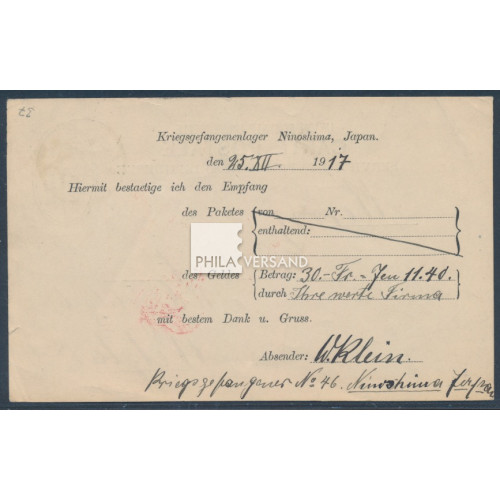 23
Kriegsgefangenenlager Ninoshima, Japan.
den 25. XII. 1917
Hiermit bestaetige ich den Empfang
des Paketes von Nr.
enthaltend:
PHILA VERSAND
des Geldes Betrag: 30.- Fr. = Jen 11.40.
durch Ihre werte Firma
mit bestem Dank u. Gruss.
Absender: W. Klein.
Kriegsgefangener No 46. Ninoshima